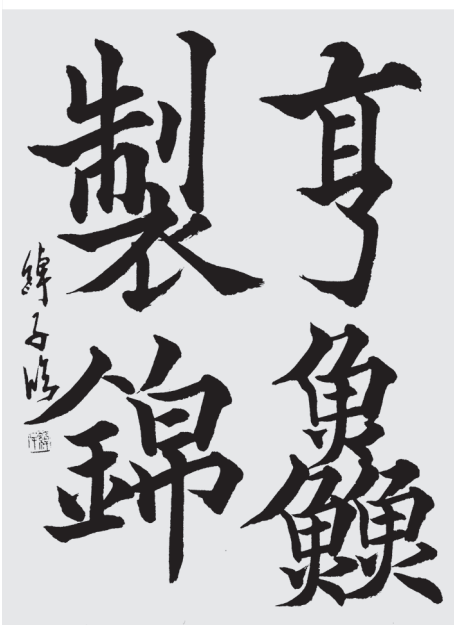 亨鱻
製錦
綽子臨